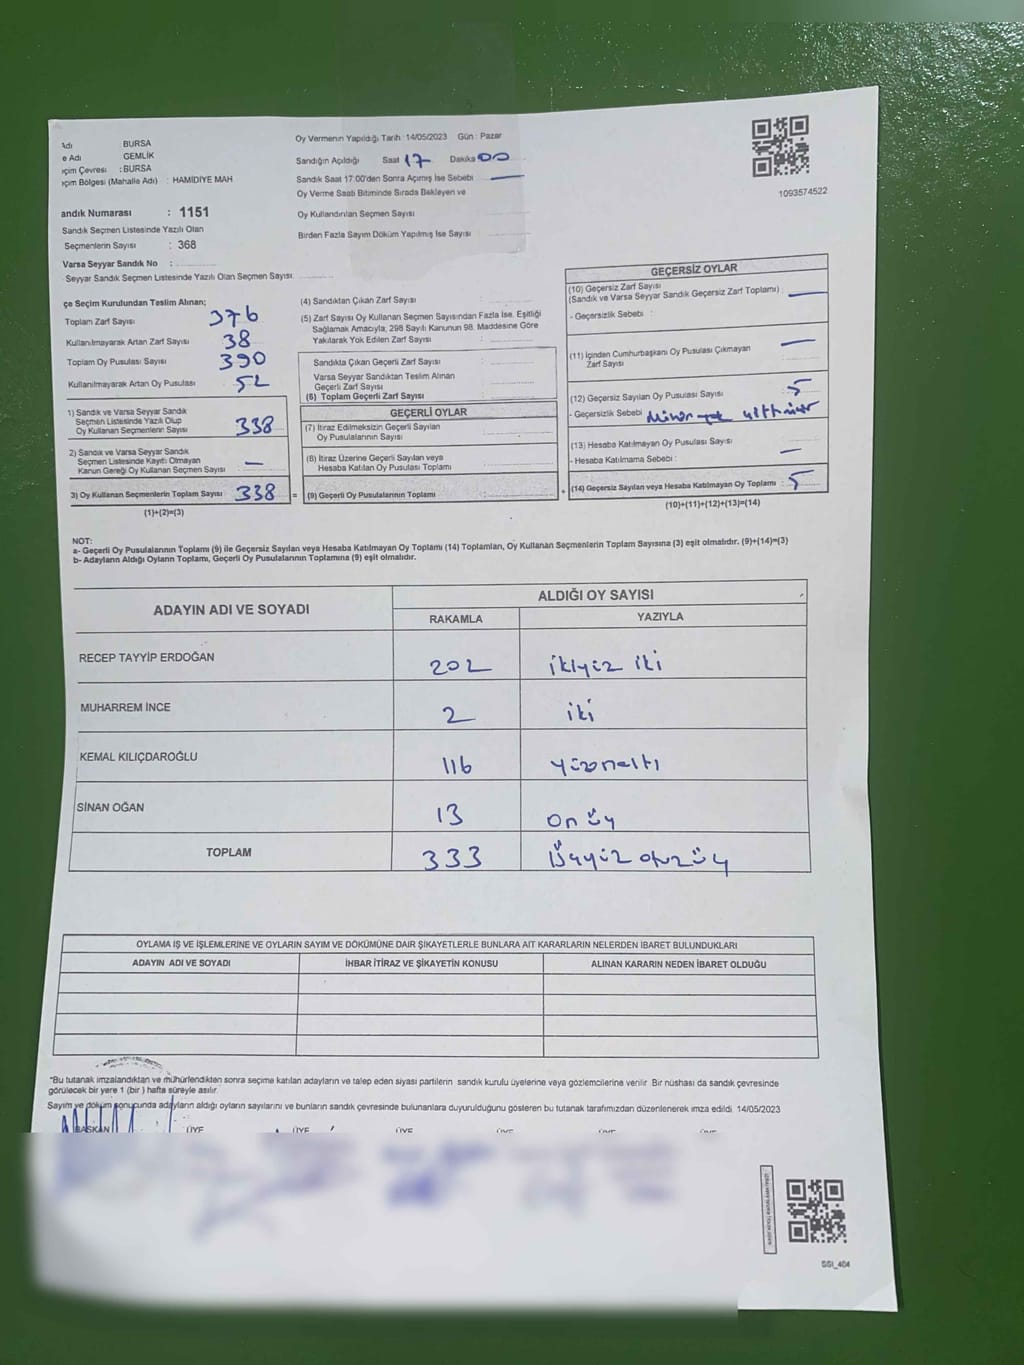 Adı : BURSA
e Adı GEMLİK
çim Çevresi : BURSA
çim Bölgesi (Mahalle Adı) : HAMIDIYE MAH
andık Numarası : 1151
Sandık Seçmen Listesinde Yazılı Olan
Seçmenlerin Sayısı : 368
Varsa Seyyar Sandık No :
Seyyar Sandık Seçmen Listesinde Yazılı Olan Seçmen Sayısı
Oy Vermenin Yapıldığı Tarih : 14/05/2023 Gün : Pazar
Sandığın Açıldığı Saat 17 Dakika 00
Sandık Saat 17:00'den Sonra Açılmış İse Sebebi —
Oy Verme Saati Bitiminde Sırada Bekleyen ve
Oy Kullandırılan Seçmen Sayısı
Birden Fazla Sayım Döküm Yapılmış İse Sayısı
1093574522
çe Seçim Kurulundan Teslim Alınan;
Toplam Zarf Sayısı 376
Kullanılmayarak Artan Zarf Sayısı 38
Toplam Oy Pusulası Sayısı 390
Kullanılmayarak Artan Oy Pusulası 52
1) Sandık ve Varsa Seyyar Sandık
Seçmen Listesinde Yazılı Olup
Oy Kullanan Seçmenlerin Sayısı 338
2) Sandık ve Varsa Seyyar Sandık
Seçmen Listesinde Kayıtlı Olmayan
Kanun Gereği Oy Kullanan Seçmen Sayısı —
3) Oy Kullanan Seçmenlerin Toplam Sayısı 338 =
(1)+(2)=(3)
(4) Sandıktan Çıkan Zarf Sayısı :
(5) Zarf Sayısı Oy Kullanan Seçmen Sayısından Fazla İse, Eşitliği
Sağlamak Amacıyla, 298 Sayılı Kanunun 98. Maddesine Göre
Yakılarak Yok Edilen Zarf Sayısı :
Sandıkta Çıkan Geçerli Zarf Sayısı :
Varsa Seyyar Sandıktan Teslim Alınan
Geçerli Zarf Sayısı
(6) Toplam Geçerli Zarf Sayısı
GEÇERLİ OYLAR
(7) İtiraz Edilmeksizin Geçerli Sayılan
Oy Pusulalarının Sayısı
(8) İtiraz Üzerine Geçerli Sayılan veya
Hesaba Katılan Oy Pusulası Toplamı
(9) Geçerli Oy Pusulalarının Toplamı +
GEÇERSİZ OYLAR
(10) Geçersiz Zarf Sayısı
(Sandık ve Varsa Seyyar Sandık Geçersiz Zarf Toplamı) : —
- Geçersizlik Sebebi :
(11) İçinden Cumhurbaşkanı Oy Pusulası Çıkmayan —
Zarf Sayısı
(12) Geçersiz Sayılan Oy Pusulası Sayısı : 5
- Geçersizlik Sebebi
(13) Hesaba Katılmayan Oy Pusulası Sayısı : —
- Hesaba Katılmama Sebebi :
(14) Geçersiz Sayılan veya Hesaba Katılmayan Oy Toplamı : 5
(10)+(11)+(12)+(13)=(14)
NOT:
a- Geçerli Oy Pusulalarının Toplamı (9) ile Geçersiz Sayılan veya Hesaba Katılmayan Oy Toplamı (14) Toplamları, Oy Kullanan Seçmenlerin Toplam Sayısına (3) eşit olmalıdır. (9)+(14)=(3)
b- Adayların Aldığı Oyların Toplamı, Geçerli Oy Pusulalarının Toplamına (9) eşit olmalıdır.
ADAYIN ADI VE SOYADI ALDIĞI OY SAYISI
RAKAMLA YAZIYLA
RECEP TAYYİP ERDOĞAN 202 ikiyüz iki
MUHARREM İNCE 2 iki
KEMAL KILIÇDAROĞLU 116 yüzonaltı
SİNAN OĞAN 13 onüç
TOPLAM 333 üçyüz otuzüç
OYLAMA İŞ VE İŞLEMLERİNE VE OYLARIN SAYIM VE DÖKÜMÜNE DAİR ŞİKAYETLERLE BUNLARA AİT KARARLARIN NELERDEN İBARET BULUNDUKLARI
ADAYIN ADI VE SOYADI İHBAR İTİRAZ VE ŞİKAYETİN KONUSU ALINAN KARARIN NEDEN İBARET OLDUĞU
*Bu tutanak imzalandıktan ve mühürlendikten sonra seçime katılan adayların ve talep eden siyasi partilerin sandık kurulu üyelerine veya gözlemcilerine verilir. Bir nüshası da sandık çevresinde
görülecek bir yere 1 (bir) hafta süreyle asılır.
Sayım ve döküm sonucunda adayların aldığı oyların sayılarını ve bunların sandık çevresinde bulunanlara duyurulduğunu gösteren bu tutanak tarafımızdan düzenlenerek imza edildi. 14/05/2023
BAŞKAN ÜYE ÜYE ÜYE ÜYE ÜYE ÜYE
SSI_404